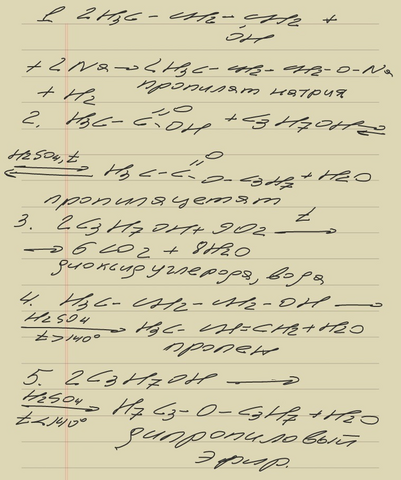 1. 2H3C – CH2 – CH2 +
OH
+ 2 Na → 2H3C – CH2 – CH2 – O – Na
+ H2 пропилят натрия
2. H3C – C =O OH + C3H7OH ⇄
H2SO4, t ⇄ H3C – C =O O – C3H7 + H2O
пропилацетат
3. 2C3H7OH + 9O2 t →
→ 6CO2 + 8H2O
диоксид углерода, вода
4. H3C – CH2 – CH2 – OH →
H2SO4 t > 140° → H3C – CH = CH2 + H2O
пропен
5. 2C3H7OH →
H2SO4 t < 140° → H7C3 – O – C3H7 + H2O
дипропиловый
эфир.